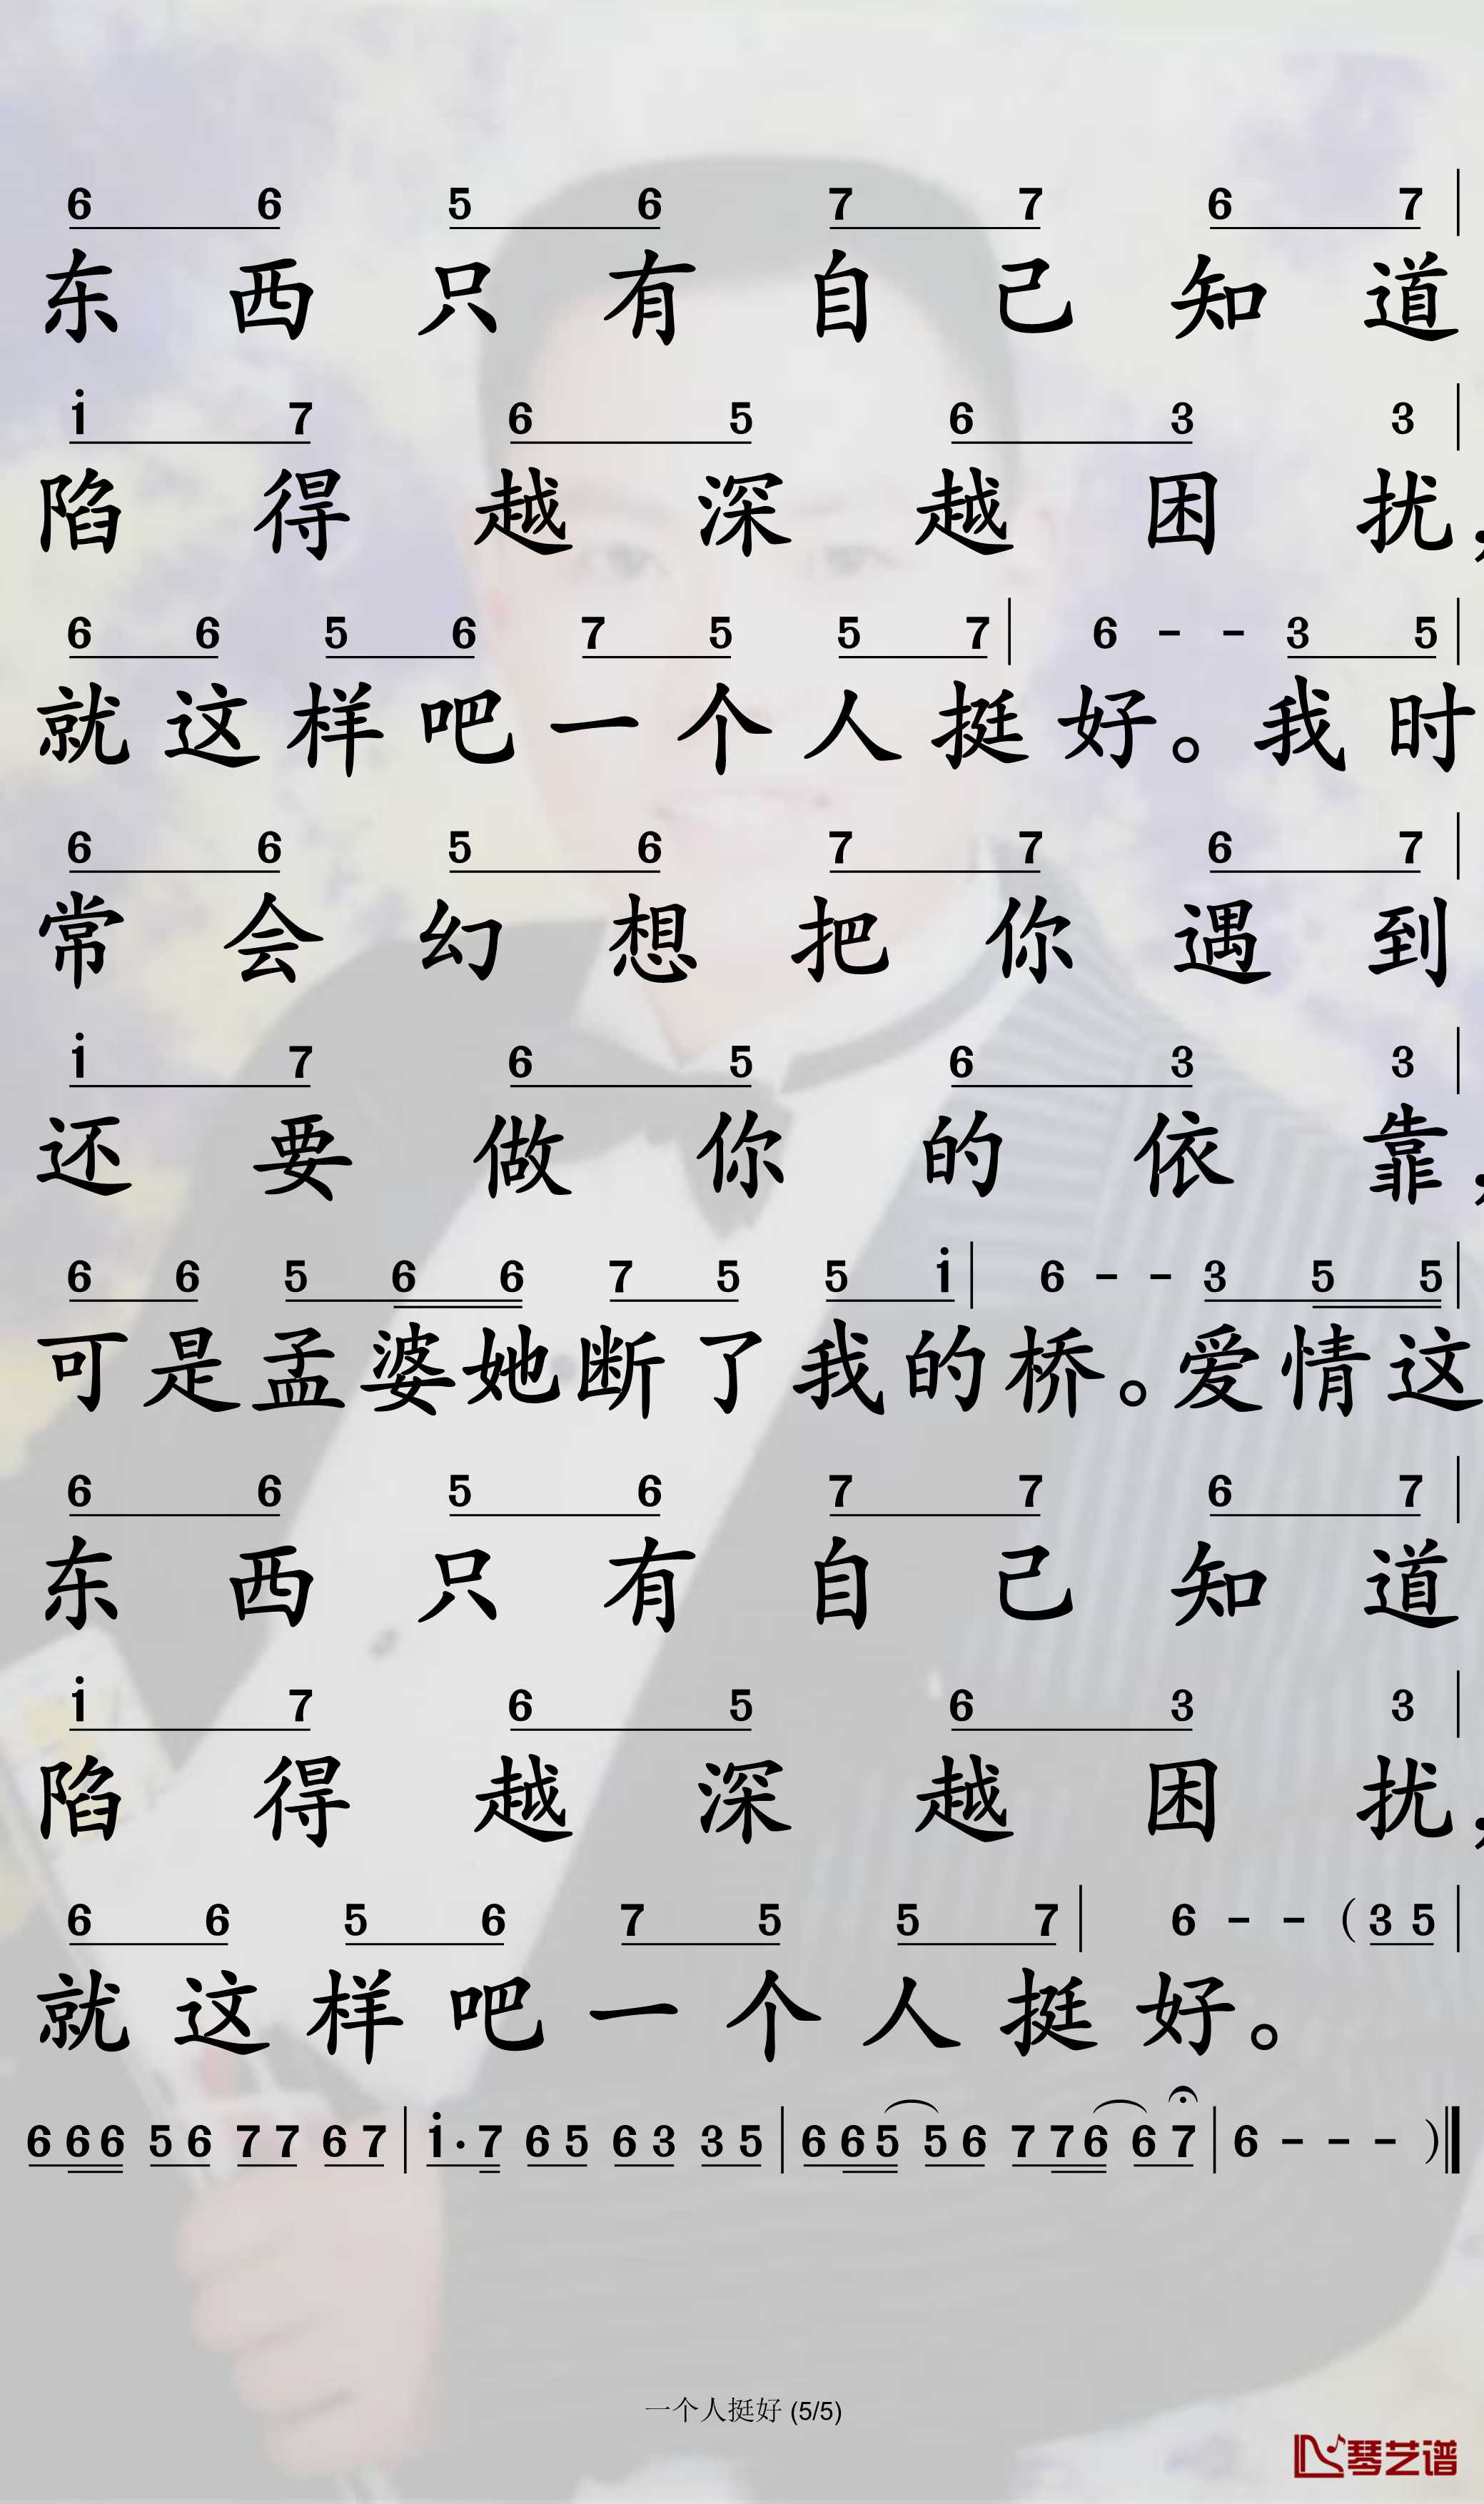 6 6 5 6 7 7 6 7 |
东西只有自己知道
i 7 6 5 6 3 3 |
陷得越深越困扰，
6 6 5 6 7 5 5 7 | 6 - - 3 5 |
就这样吧一个人挺好。我时
6 6 5 6 7 7 6 7 |
常会幻想把你遇到
i 7 6 5 6 3 3 |
还要做你的依靠，
6 6 5 6 6 7 5 5 i | 6 - - 3 5 5 |
可是孟婆她断了我的桥。爱情这
6 6 5 6 7 7 6 7 |
东西只有自己知道
i 7 6 5 6 3 3 |
陷得越深越困扰，
6 6 5 6 7 5 5 7 | 6 - - (3 5 |
就这样吧一个人挺好。
6 6 6 5 6 7 7 6 7 | i · 7 6 5 6 3 3 5 | 6 6 5 5 6 7 7 6 6 7 | 6 - - - )
一个人挺好 (5/5)
琴艺谱